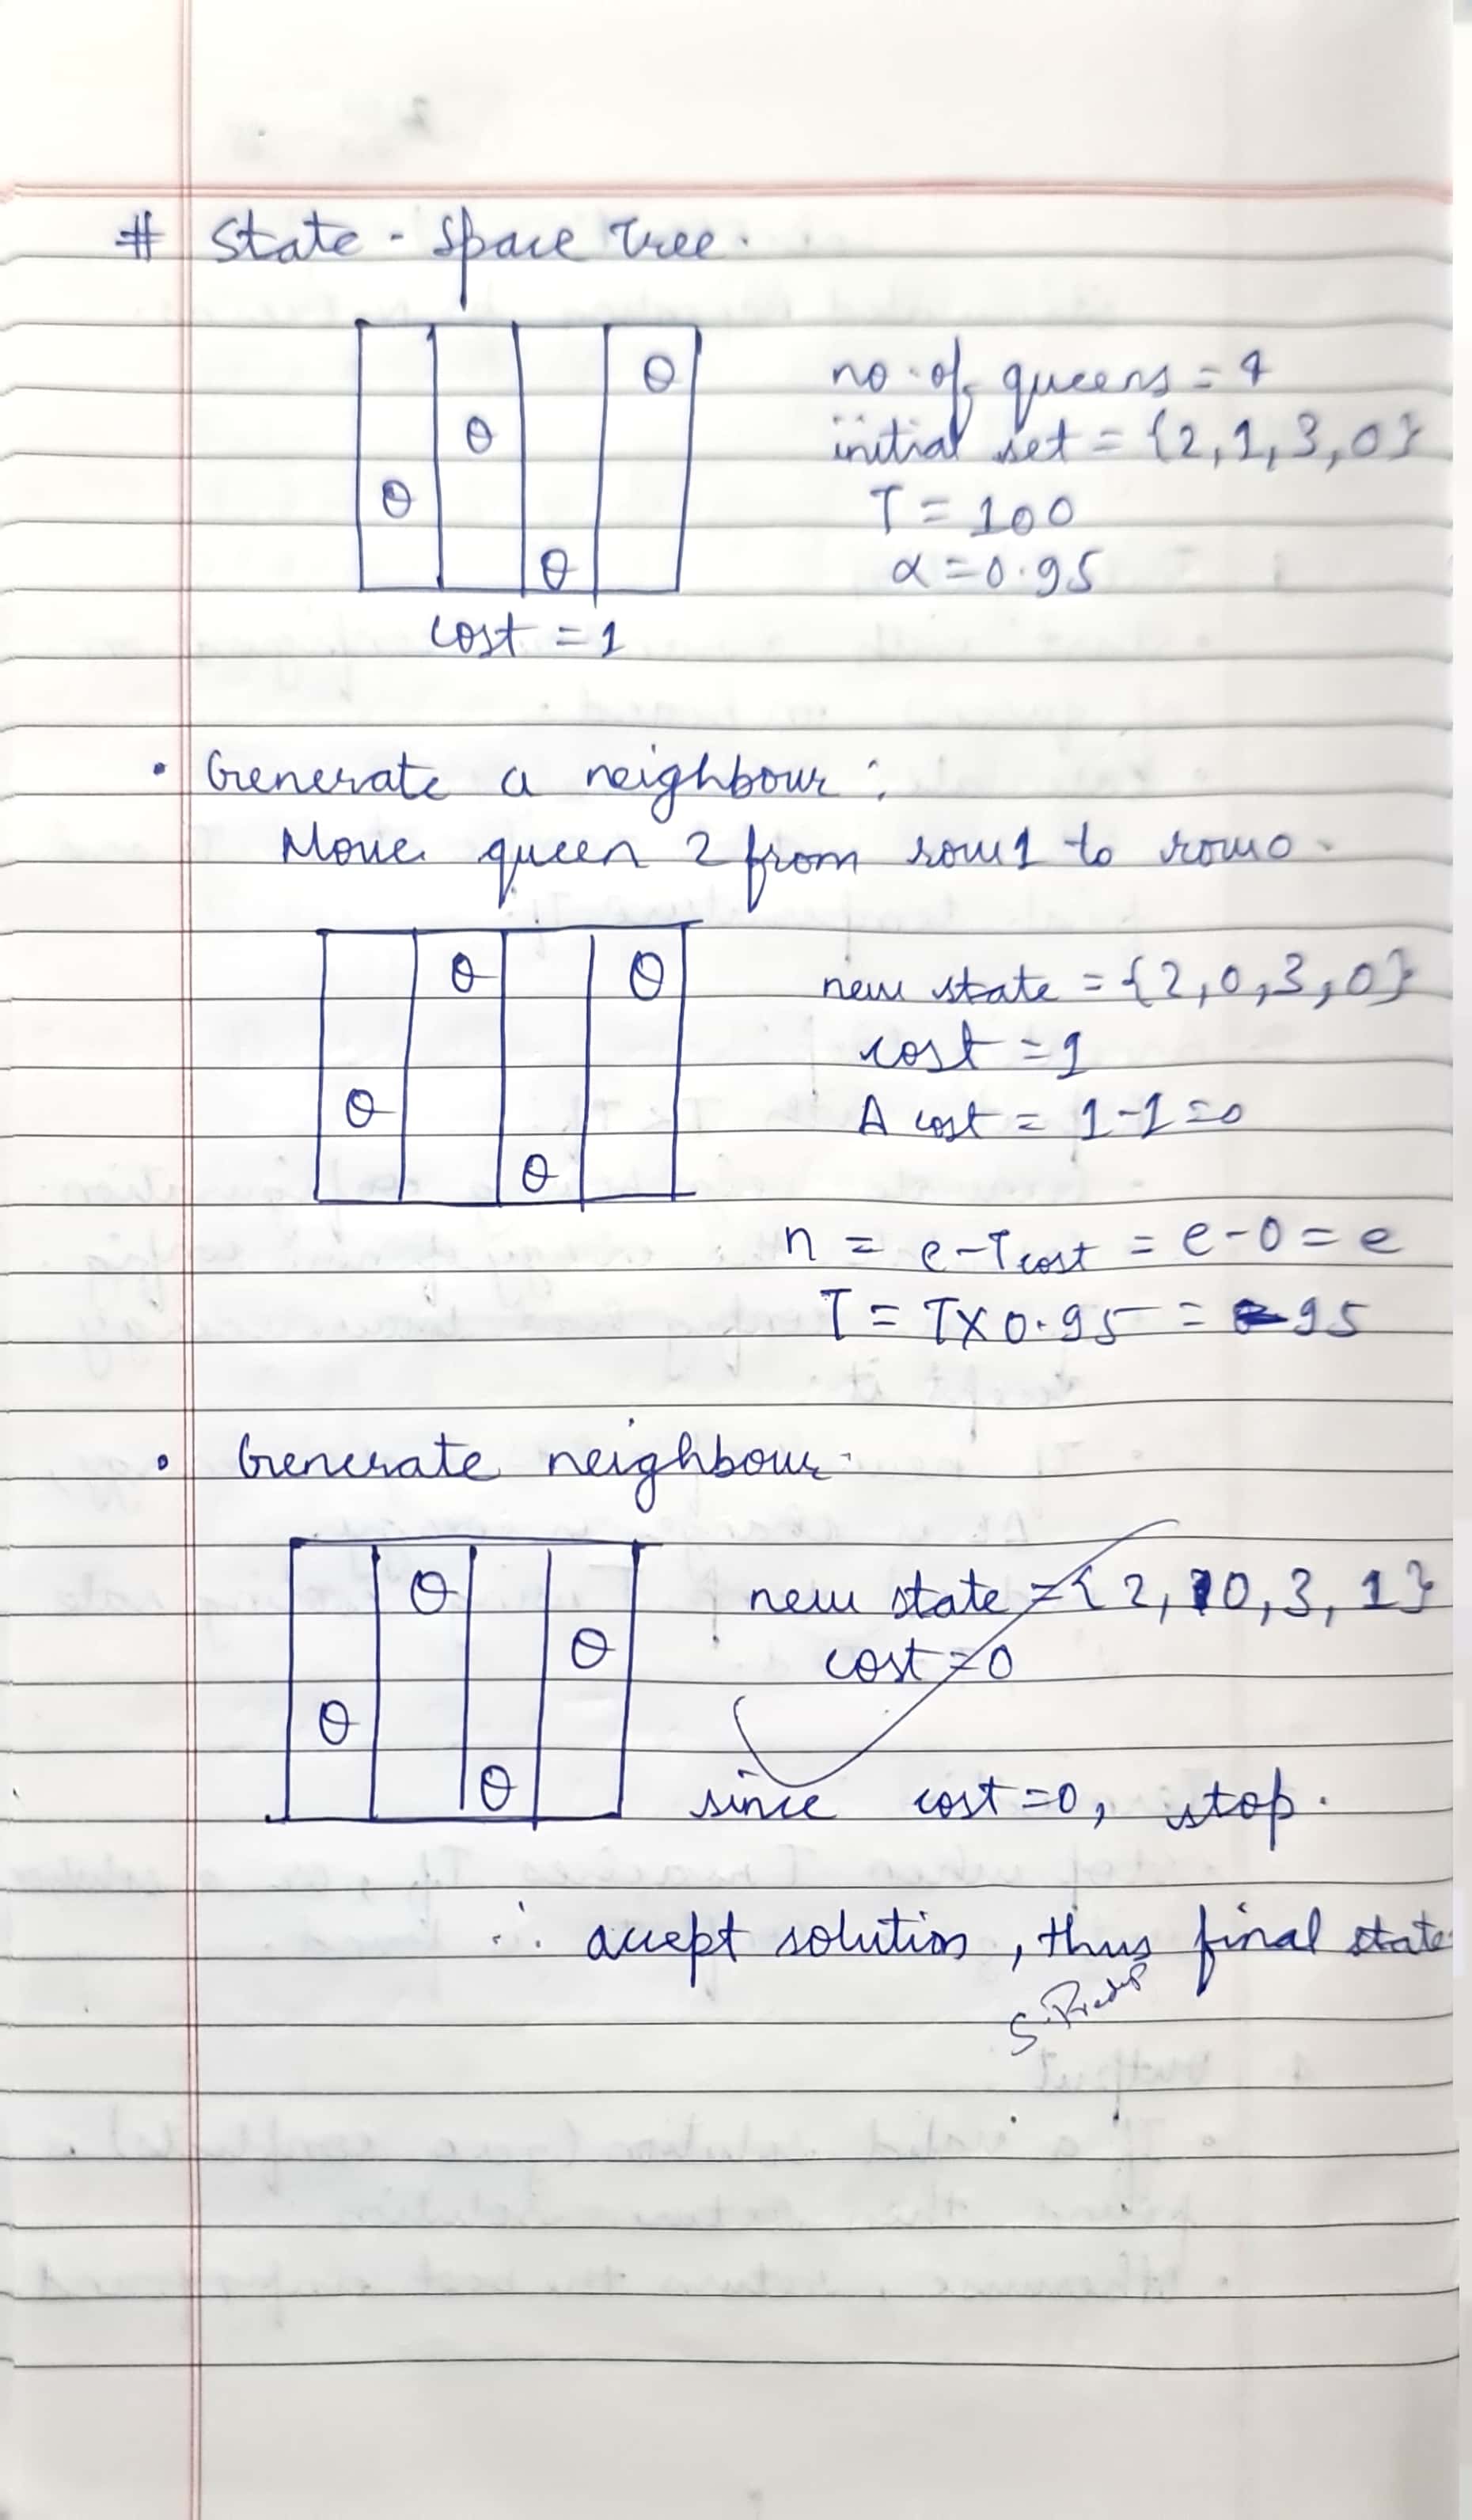 # State - Space Tree.
no. of queens = 4
initial set = {2,1,3,0}
T = 100
α = 0.95
cost = 1
• Generate a neighbour :
Move queen 2 from row 1 to row 0.
new state = {2,0,3,0}
cost = 1
Δ cost = 1-1=0
n = e-Tcost = e-0 = e
T = T×0.95 = 95
• Generate neighbour.
new state = {2, 0, 3, 1}
cost=0
since cost=0, stop.
∴ accept solution, thus final state